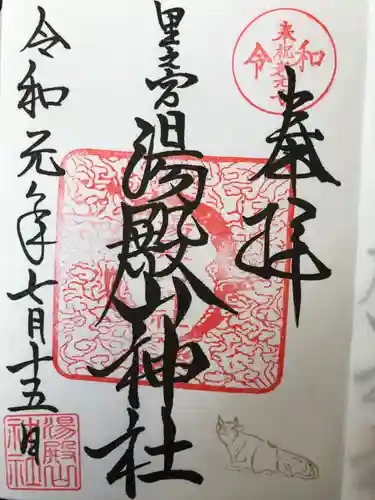 奉拝
奉祝改元
令和
里之宮
湯殿山神社
令和元年七月十五日
湯殿山
神社